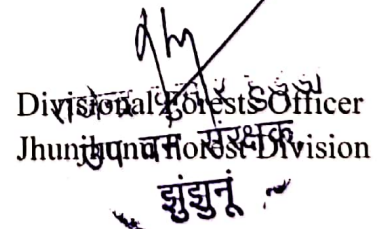 Divisional Forests Officer
Jhunjhunu Forest Division
उप वन संरक्षक,
झुंझुनूं